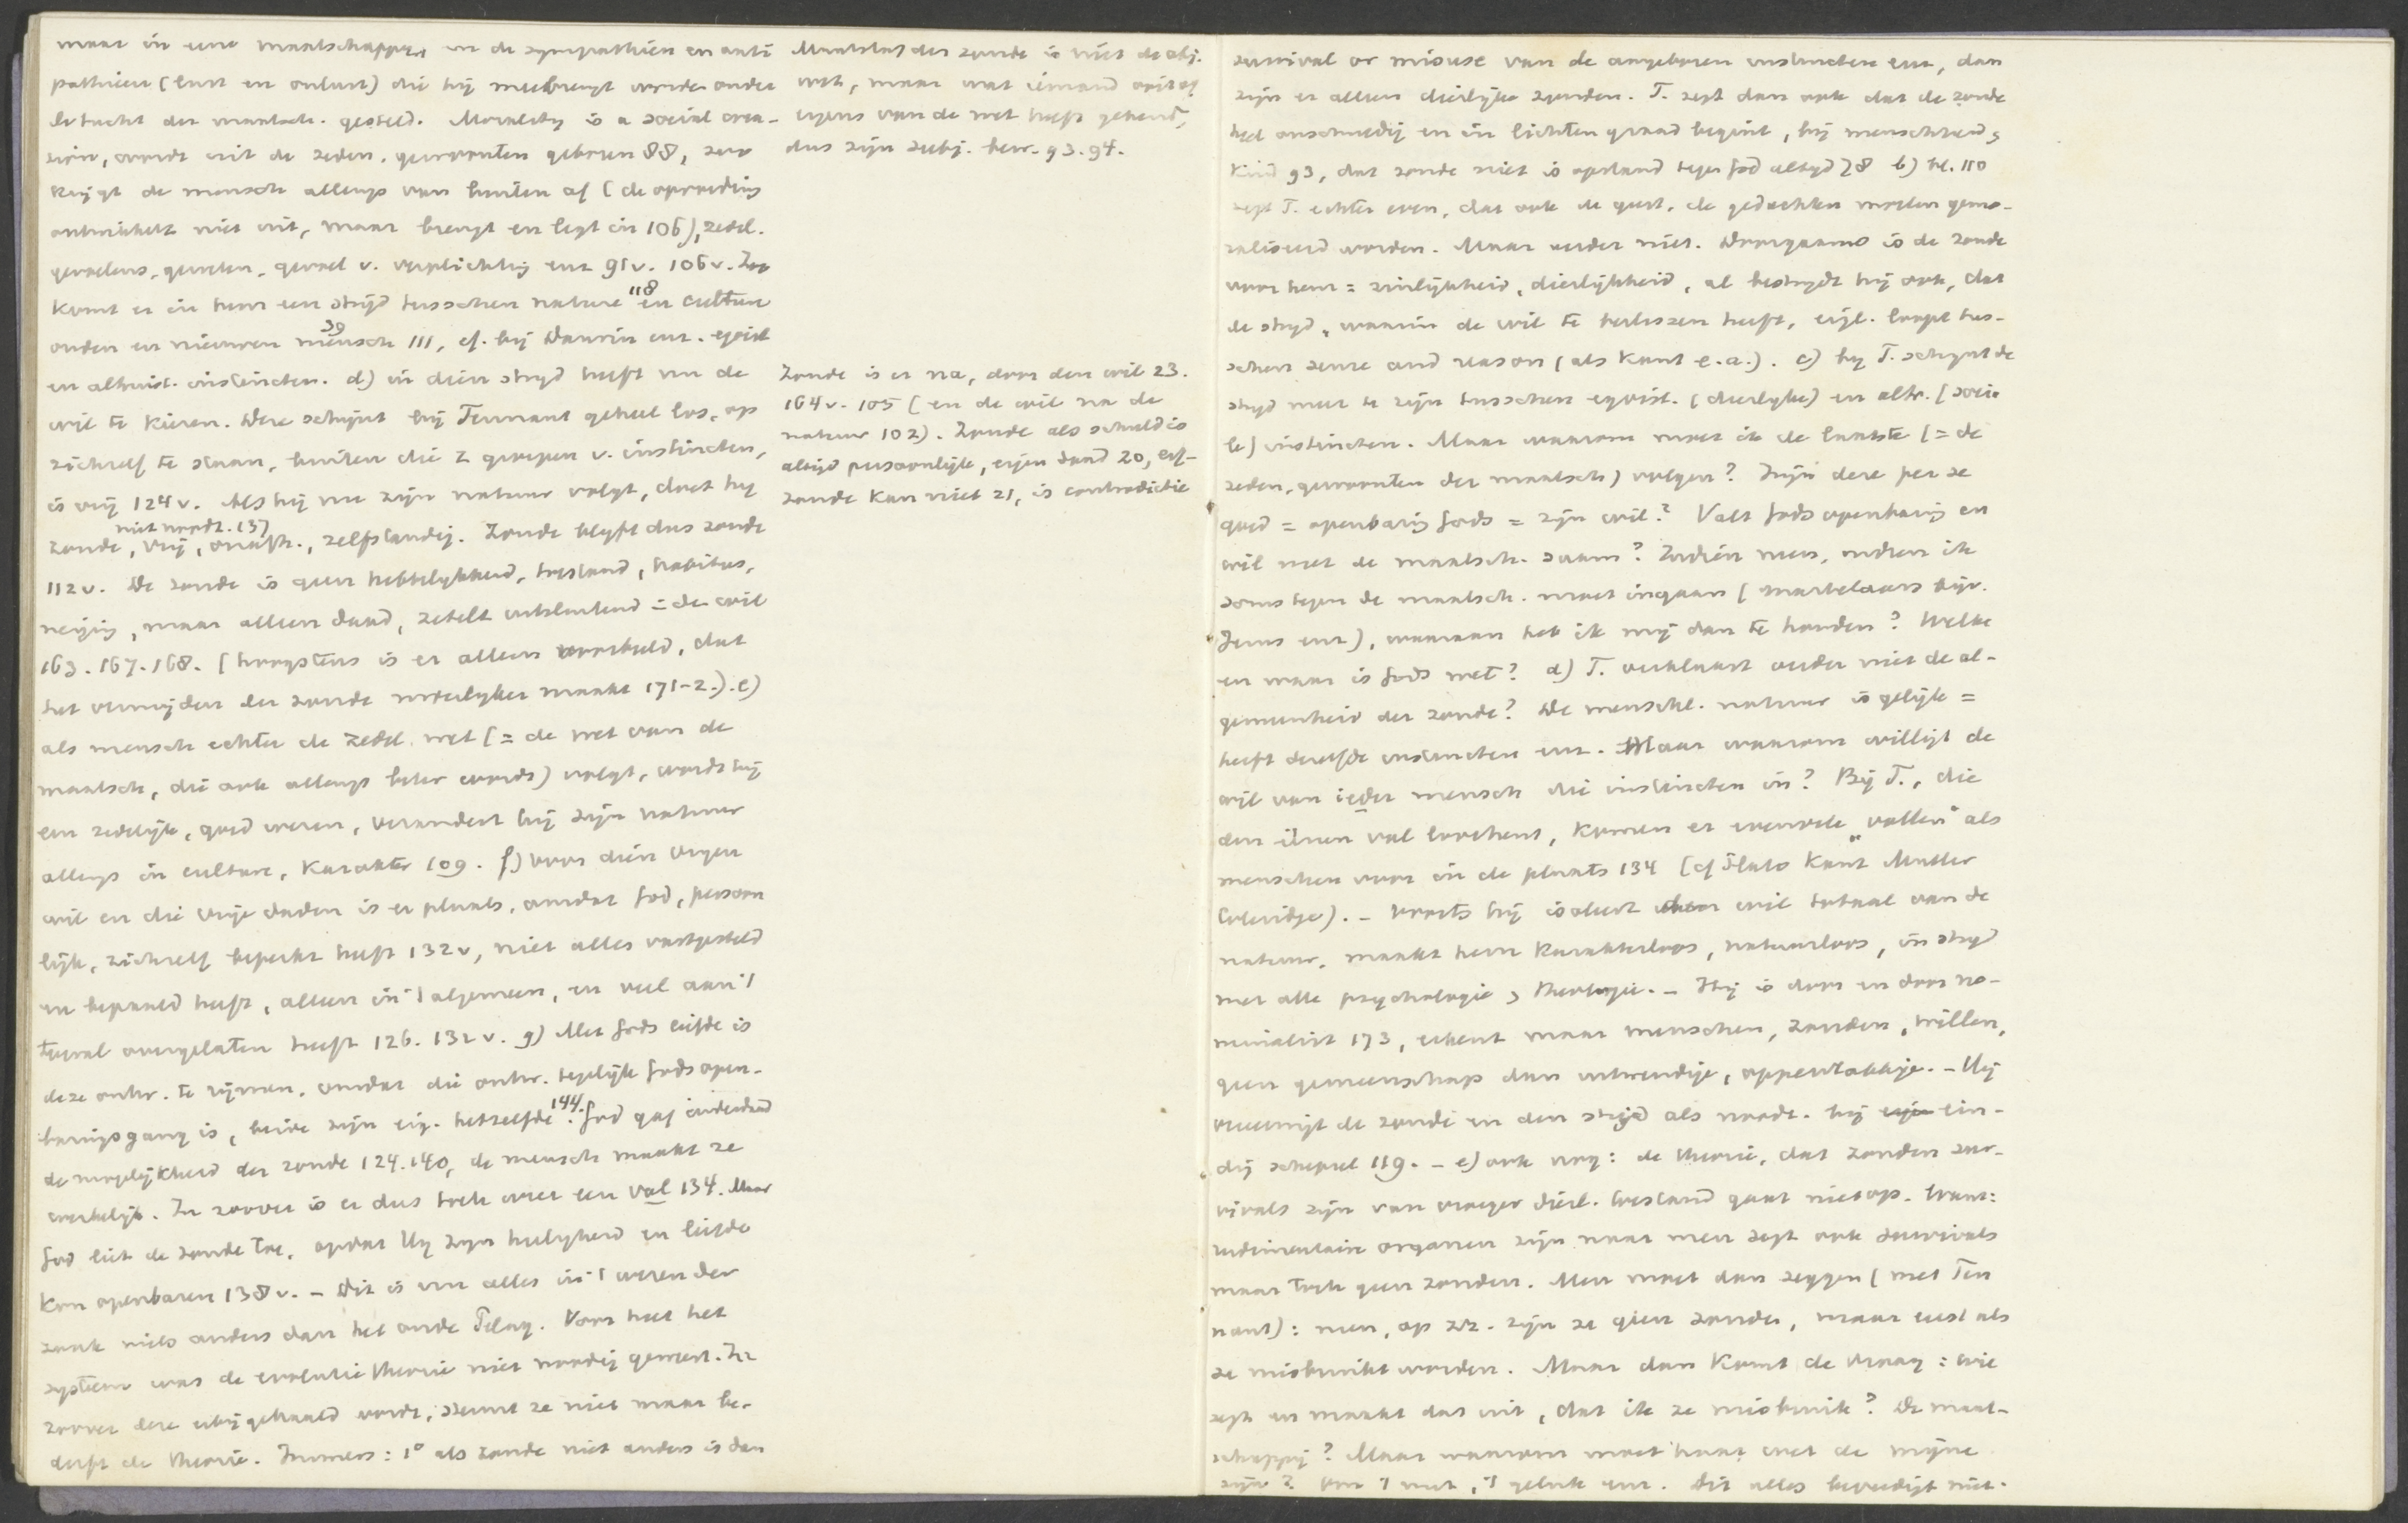 maar in eene maatschappij en de sympathieën en anti
pathieën (lust en onlust) die hij meebrengt worden onder
de tucht der maatsch. gesteld. Morality is a social crea-
tion, wordt uit de zeden, gewoonten geboren 88, zoo
krijgt de mensch allengs van buiten af (de opvoeding
ontwikkelt niet uit, maar brengt en legt in 106), zedel.
gevoelens, geweten, gevoel v. verplichting enz 91v. 106v. Zoo
komt er in hem een strijd tusschen nature 118 en cultuur
ouden en nieuwen mensch 39 111, cf. bij Darwin enz. egoist
en altruist. instincten. d) in dien strijd heeft nu de
wil te kiezen. Deze schijnt bij Tennant geheel los, op
zichzelf te staan, buiten die 2 groepen v. instincten,
is vrij 124v. Als hij nu zijn natuur volgt, doet hij
niet noodz. 137
zonde, vrij, onafh., zelfstandig. Zonde blijft dus zonde
112v. De zonde is geen hebbelijkheid, toestand, habitus,
neiging, maar alleen daad, zetelt uitsluitend in de wil
163. 167. 168. (hoogstens is er alleen voorbeeld, dat
het vermijden der zonde moeilijker maakt 171-2.). e)
als mensch echter de zedel. wet (= de wet van de
maatsch, die ook allengs beter wordt) volgt, wordt hij
een zedelijk, goed wezen, verandert hij zijn natuur
allengs in culture, karakter 109. f) voor dien vrijen
wil en die vrije daden is er plaats, omdat God, persoon
lijk, zichzelf beperkt heeft 132v, niet alles vastgesteld
en bepaald heeft, alleen in 't algemeen, en veel aan 't
toeval overgelaten heeft 126. 132v. g) Met Gods liefde is
deze ontw. te rijmen, omdat die ontw. tegelijk Gods open-
baringsgang is, beide zijn eig. hetzelfde 144. God gaf inderdaad
de mogelijkheid der zonde 124. 140, de mensch maakt ze
werkelijk. In zoover is er dus toch weer een val 134. Maar
God liet de zonde toe, opdat Hij zijn heiligheid en liefde
kon openbaren 138v. - Dit is nu alles in 't wezen der
zaak niets anders dan het oude Pelag. Voor heel het
systeem was de evolutie theorie niet noodig geweest. In
zoover deze erbij gehaald wordt, steunt ze niet maar be-
derft de theorie. Immers: 1° als zonde niet anders is dan
Maatstaf der zonde is niet de obj.
wet, maar wat iemand
van de wet heeft gekend,
dus zijn subj. bew. 93. 94.
Zonde is er na, door den wil 23.
164v. 105 (en de wil na de
natuur 102). Zonde als schuld is
altijd persoonlijk, eigen daad 20, erf-
zonde kan niet 21, is contradictie
survival or misuse van de aangeboren instincten enz, dan
zijn er alleen dierlijke zonden. T. zegt dan ook dat de zonde
heel onschuldig en in lichten graad begint, bij menschheid &
kind 93, dat zonde niet is opstand tegen God altijd 28 b) bl. 110
zegt T. echter even, dat ook de geest, de gedachten moeten gemo-
raliseerd worden. Maar verder niet. Doorgaans is de zonde
voor hem = zinlijkheid, dierlijkheid, al bestrijdt hij ook, dat
de strijd, waarin de wil te beslissen heeft, eigl. loopt tus-
schen sense and reason (als Kant e.a.). c) bij T. schijnt de
strijd meer te zijn tusschen egoist. (dierlijke) en altr. (socia
le) instincten. Maar waarom moet ik de laatste (= de
zeden, gewoonten der maatsch) volgen? Zijn deze per se
goed = openbaring Gods = zijn wil? Valt Gods openbaring en
wil met de maatsch. saam? Indien neen, indien ik
soms tegen de maatsch. moet ingaan (martelaars bijv.
Jezus enz), waaraan heb ik mij dan te houden? Welke
en waar is Gods wet? d) T. verklaart verder niet de al-
gemeenheid der zonde? De menschl. natuur is gelijk =
heeft dezelfde instincten enz. Maar waarom willigt de
wil van ieder mensch die instincten in? Bij T., die
den éénen val loochent, komen er evenvele „vallen" als
menschen voor in de plaats 134 (cf Plato Kant Muller
Coleridge). - Voorts hij isoleert den wil totaal van de
natuur, maakt hem karakterloos, natuurloos, in strijd
met alle psychologie & theologie. - Hij is door en door no-
minalist 173, erkent maar menschen, zonden, willen,
geen gemeenschap dan uitwendige, oppervlakkige. - Hij
vereenigt de zonde en den strijd als noodz. bij ein-
dig schepsel 119. - e) ook nog: de theorie, dat zonden sur-
vivals zijn van vroeger dierl. toestand gaat niet op. Want:
rudimentaire organen zijn naar men zegt ook survivals
maar toch geen zonden. Men moet dan zeggen (met Ten
nant): neen, op zz. zijn ze geen zonden, maar eerst als
ze misbruikt worden. Maar dan komt de vraag: wie
zegt en maakt dat uit, dat ik ze misbruik? De maat-
schappij? Maar waarom moet haar wet de mijne
zijn? Om 't nut, 't geluk enz. Dit alles bevredigt niet.